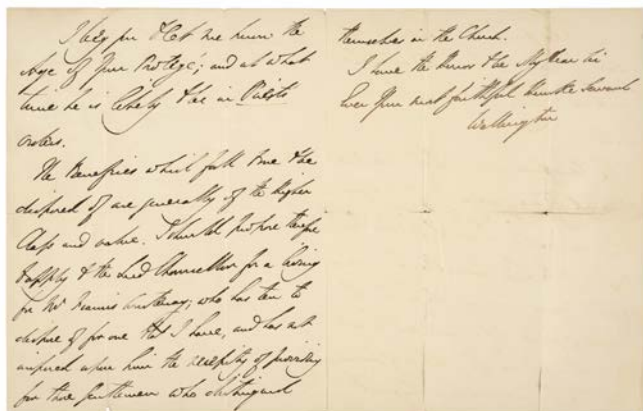 I beg you to let me know the
Age of your Protégé; and at what
time he is likely to be in Priests
orders.
The Benefices which fall to me to be
disposed of are generally of the higher
Class and value. I should propose therefore
to apply to the Lord Chancellor for a living
for Mr Francis Courtenay; who has ten to
dispose of for one that I have, and has not
imposed upon him the necessity of providing
for those Gentlemen who distinguish
themselves in the Church.
I have the Honor to be My dear Sir
Ever Your most faithful Humble Servant
Wellington